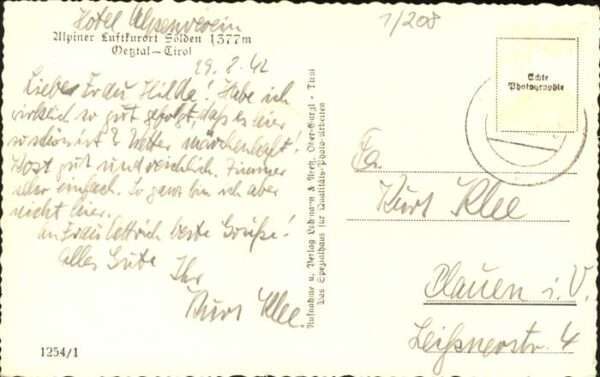 Hotel Alpenverein
Alpiner Luftkurort Sölden 1377m
Oetztal—Tirol
1/208
29. 8. 42
Liebe Frau Hilde! Habe ich
wirklich so gut gefolgt, daß es hier
so schön ist? Wetter märchenhaft!
Kost gut und reichlich. Zimmer
aber einfach. So ganz bin ich aber
nicht hier.
An Frau beste Grüße!
Alles Gute Ihr
Kurt Klee.
1254/1
Aufnahme u. Verlag Lohmann & Ober-Gurgl - Tirol
Das Spezialhaus für Qualitäts-Photo-Arbeiten
Echte
Photographie
Fa.
Kurt Klee
Plauen i. V.
Leißnerstr. 4